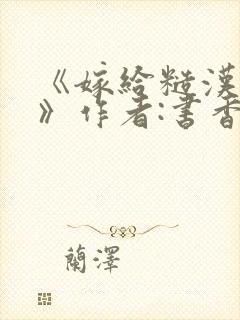 《嫁給糙漢
》作者:書香
蘭澤